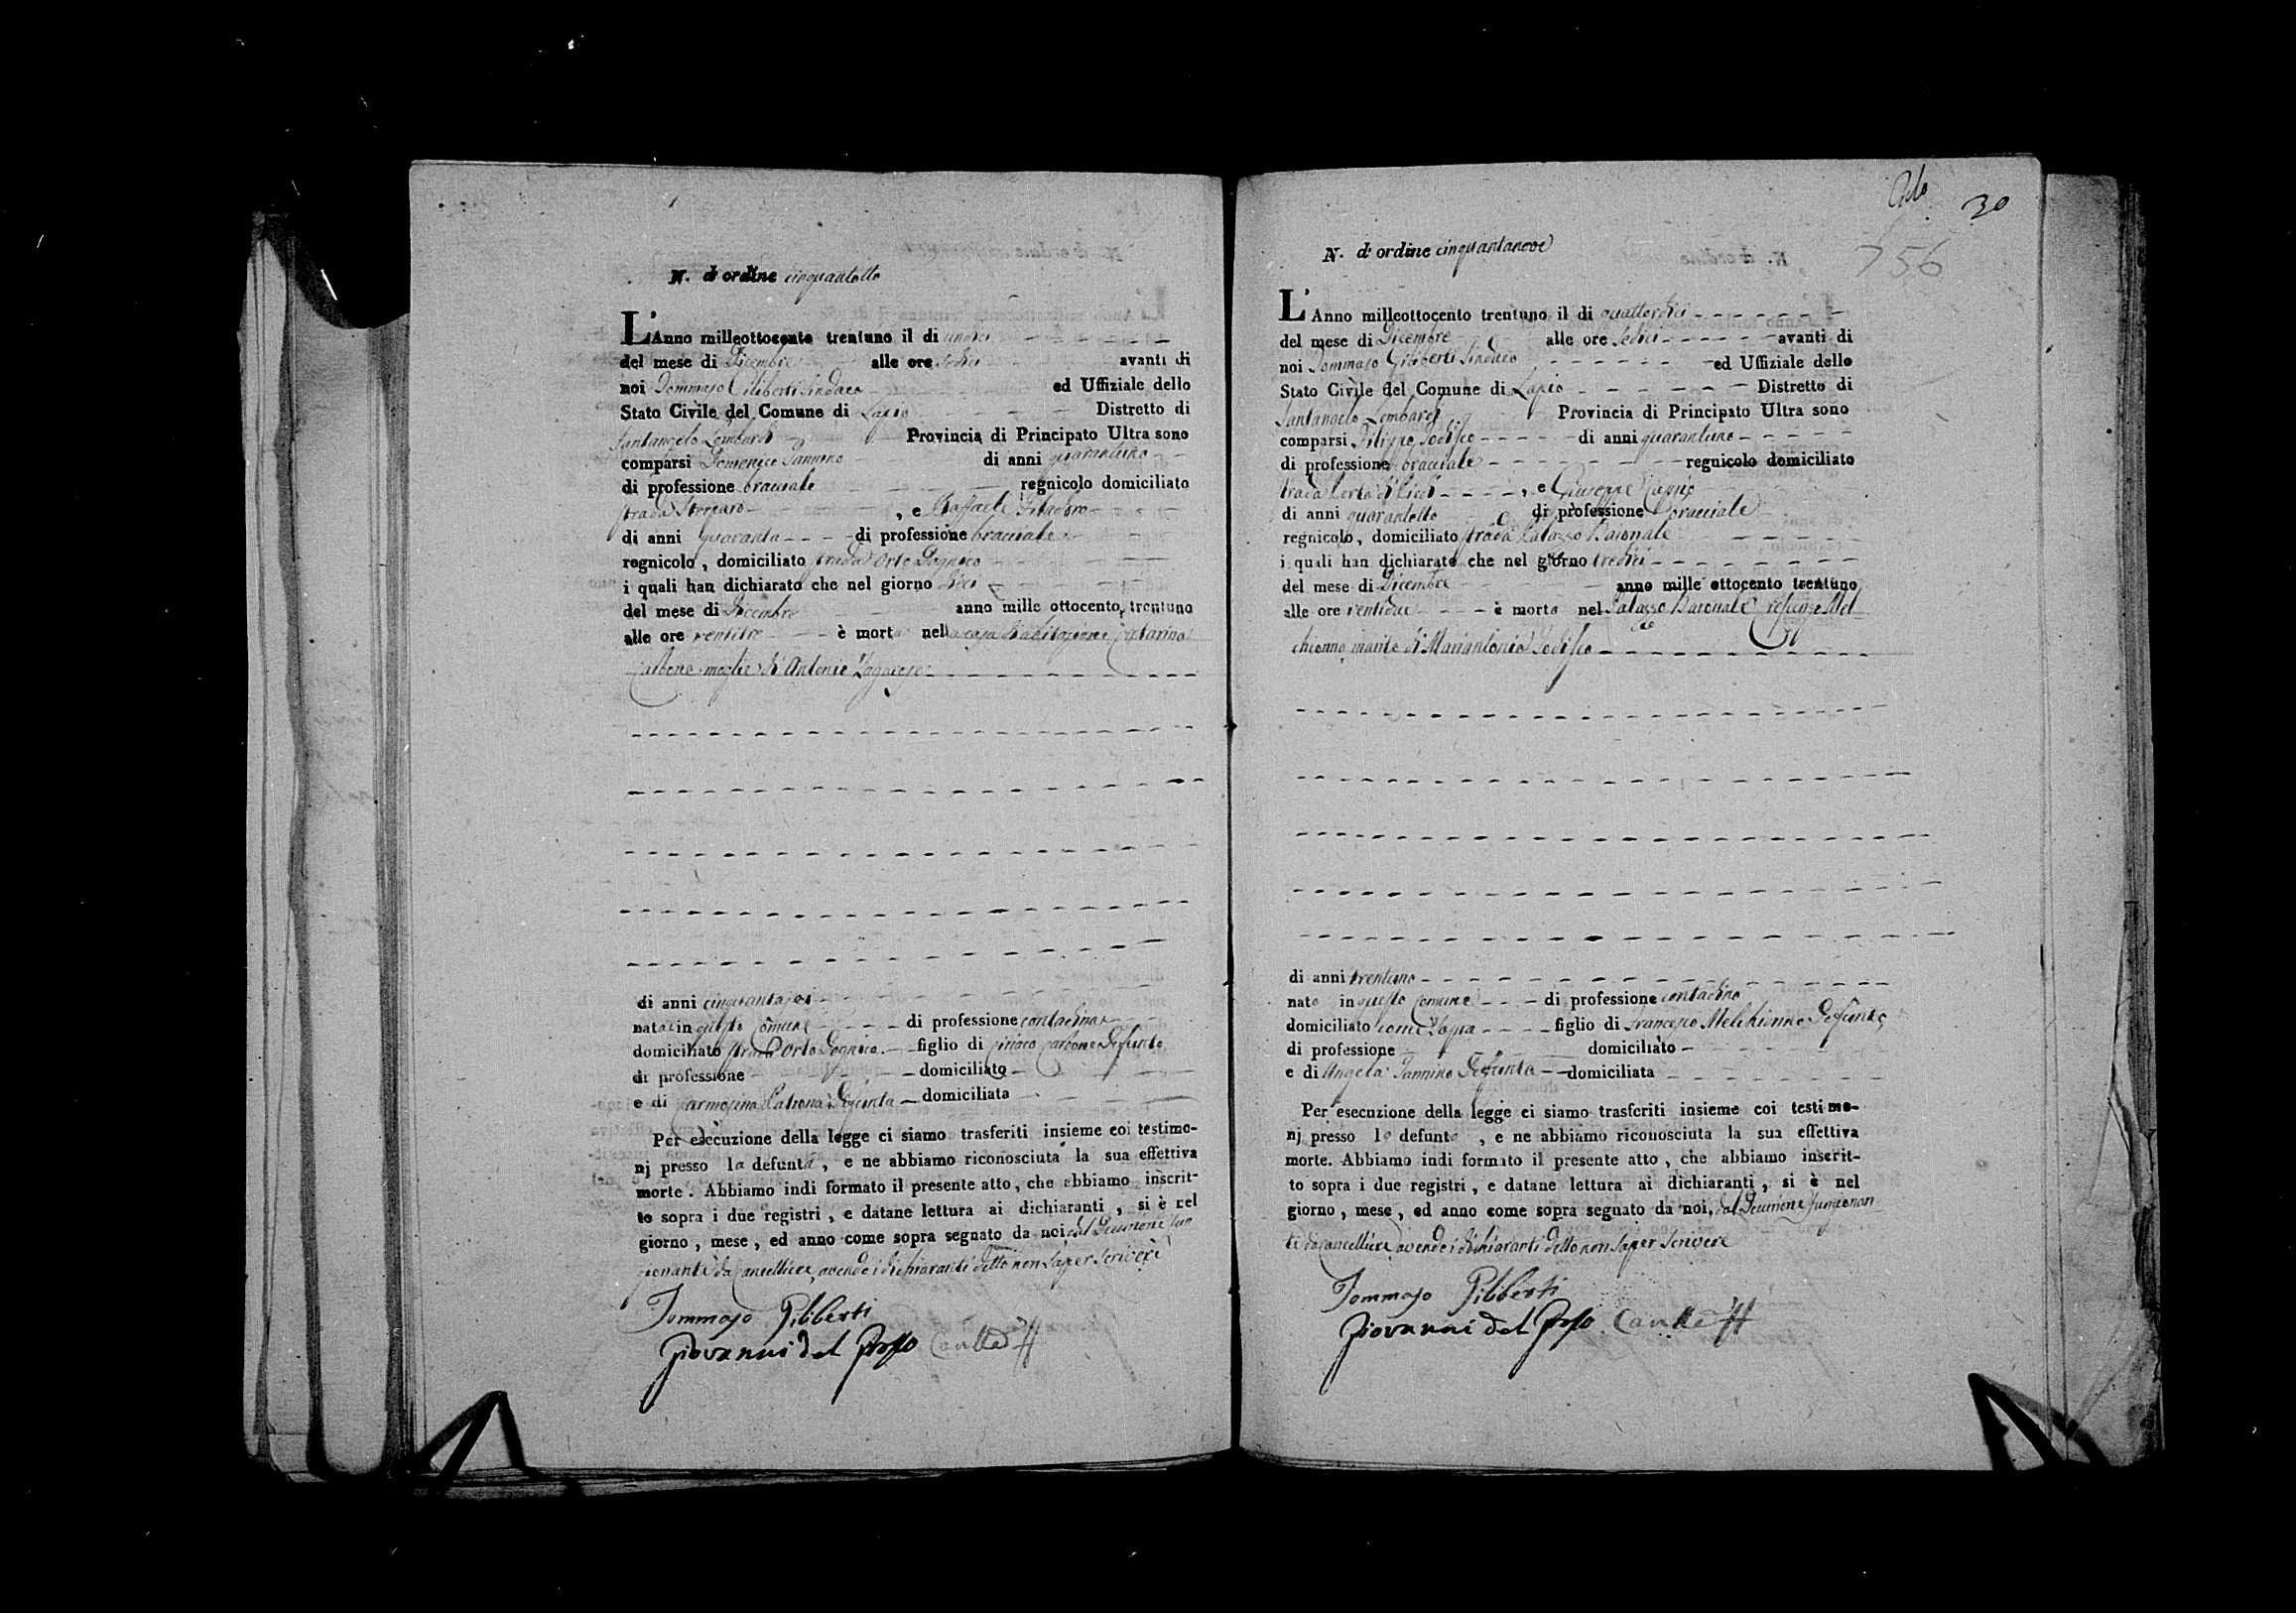 N. d'ordine cinquantotto
L'Anno milleottocento trentuno il di undici
del mese di Dicembre alle ore sedici avanti di
noi Tommaso Giliberti Sindaco ed Uffiziale dello
Stato Civile del Comune di Lapio Distretto di
Santangelo Lombardi Provincia di Principato Ultra sono
comparsi Domenico Iannino di anni quarantuno
di professione bracciale regnicolo domiciliato
strada , e Raffaele
di anni quaranta di professione bracciale
regnicolo , domiciliato strada Orto
i quali han dichiarato che nel giorno dieci
del mese di Dicembre anno mille ottocento trentuno
alle ore ventitre è morta nella casa d'abitazione Catarina
Carbone moglie di Antonio
di anni cinquantasei
nata in questo Comune di professione contadina
domiciliato strada Orto figlio di Ciriaco Carbone Defunto
di professione domiciliato
e di Carmosina Defunta domiciliata
Per esecuzione della legge ci siamo trasferiti insieme coi testimo-
nj presso la defunta , e ne abbiamo riconosciuta la sua effettiva
morte . Abbiamo indi formato il presente atto , che abbiamo inscrit-
to sopra i due registri , e datane lettura ai dichiaranti , si è nel
giorno , mese , ed anno come sopra segnato da noi, dal Decurione fun
zionante da Cancelliere, avendo i dichiaranti detto non saper scrivere
Tommaso Giliberti
Giovanni del Grosso
Ado 30
756
N. d'ordine cinquantanove
L'Anno milleottocento trentuno il di quattordici
del mese di Dicembre alle ore sedici avanti di
noi Tommaso Giliberti Sindaco ed Uffiziale dello
Stato Civile del Comune di Lapio Distretto di
Santangelo Lombardi Provincia di Principato Ultra sono
comparsi Filippo Lodisco di anni quarantuno
di professione bracciale regnicolo domiciliato
strada , e Giuseppe
di anni quarantotto di professione bracciale
regnicolo , domiciliato strada Palazzo Baronale
i quali han dichiarato che nel giorno tredici
del mese di Dicembre anno mille ottocento trentuno
alle ore ventidue è morto nel Palazzo Baronale Mel
chionno marito di Mariantonia Lodisco
di anni trentuno
nato in questo Comune di professione contadino
domiciliato come sopra figlio di Francesco Melchionno Defunto
di professione domiciliato
e di Angela Iannino Defunta domiciliata
Per esecuzione della legge ci siamo trasferiti insieme coi testimo-
nj presso lo defunto , e ne abbiamo riconosciuta la sua effettiva
morte. Abbiamo indi formato il presente atto , che abbiamo inscrit-
to sopra i due registri , e datane lettura ai dichiaranti , si è nel
giorno , mese , ed anno come sopra segnato da noi, dal Decurione funzionan
te da Cancelliere avendo i dichiaranti detto non saper scrivere
Tommaso Giliberti
Giovanni del Grosso